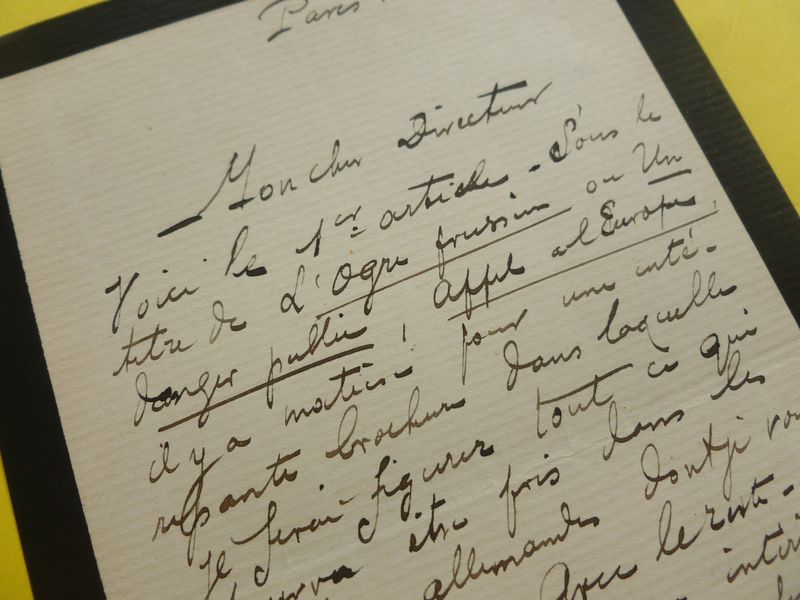 Paris
Mon cher Directeur
Voici le 1er article - Sous le
titre de L'Ogre prussien ou Un
danger public, appel à l'Europe,
il y a matière pour une inté-
ressante brochure dans laquelle
je ferai figurer tout ce qui
pourra être pris dans les
allemandes dont je vous
Avec le reste